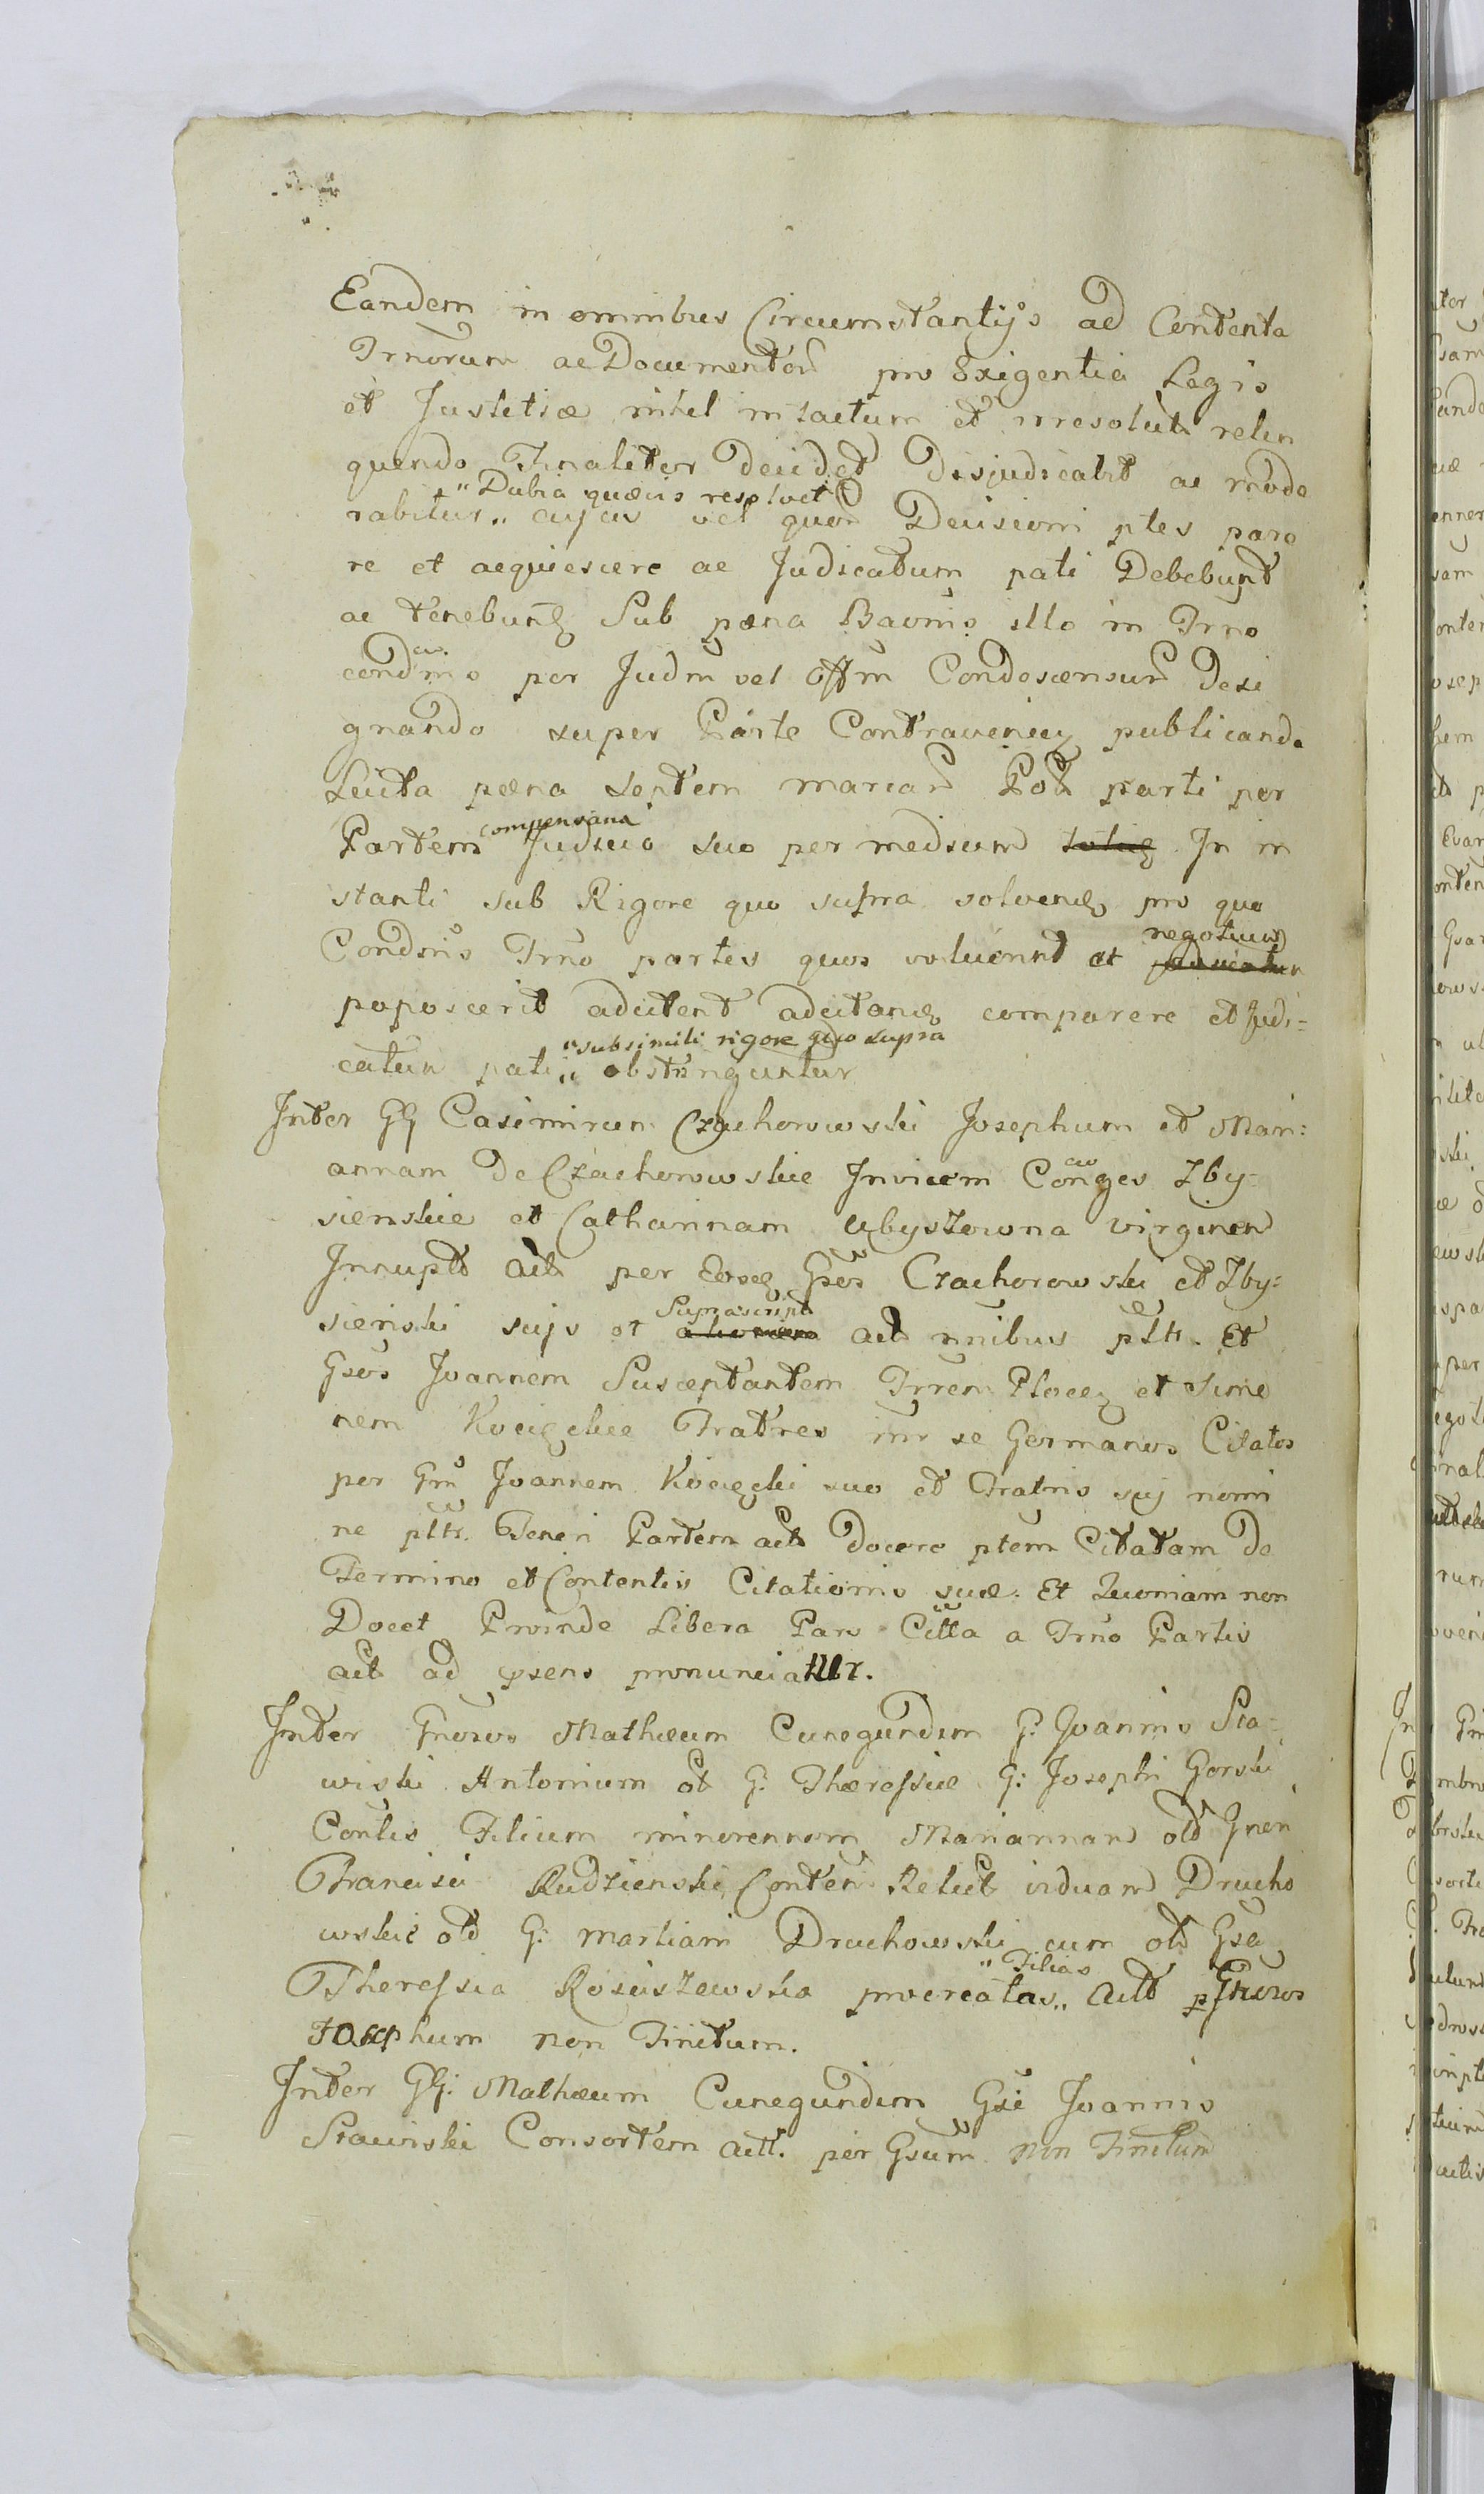 Eandem in omnibus Circumstantijs ad Contenta
Trnorum ac Documentor pro Exigentia Legis
et Justitiæ nihil intactum et irresolut relin
quendo Finaliter decidet Disjudicabit ac mode
"Dubia quævis resolvet
rabitur,, cujus vel quor Decisioni ptes pare
re et acquiescere ac Judicatum pati Debebunt
ac tenebunt Sub pæna Bannis illo in Trno
condnis per Judm vel Offm Condescensur Desi
gnando super Parte Contravenien publicanda
Luita pæna septem marcar Pol parti per
compensana
Partem Judicio suo per medium In in
stanti sub Rigore quo supra solven pro quo
negotium
Condsnis Trno partes quos voluerint et
poposcerit adcitent adcitan comparere et Judi=
"sub simili rigore quo supra
catum pati,, obstringuntur
Inter GG Casimirum Czachorowski Josephum et Mari=
annam De Czachorowskie Invicem Conges Zby=
sienskie et Catharinam Ubyszowna virginem
Innupt Act per Eosq Gsos Czachorowski et Zby=
Suprascript
sienski sujs et act nnibus pltr. Et
Gsos Joannem Susceptantem Trren Plocen et Sime
nem Kocięckie Fratres inr se Germanos Citatos
per Gm Joannem Kocięcki suo et Fratris suj nomi
ne pltr. Teneri Partem act docere ptem Citatam de
Termino et Contentis Citationis suæ. Et Quoniam non
Docet Proinde Libera Pars Citta a Trno Partis
act ad psens pronunciattur.
Inter Gnosos Mathæum Cunegundim G. Joannis Sta=
wiski Antonium ol G. Theressiæ G: Josephi Gorski
Contis Filium minorennem Mariannam old Gnen
Francisci Rudzienski Conten Relict viduam Drucho
wskie old G: Martiani Druchowski cum old Gsa
"Filias
Theressia Rosciszewska procreatas,, Actt p Gnosos
Josephum non Finitum.
Inter GG: Mathæum Cunegundim Gsi Joannis
Stawiski Consortem Actt. per Gsum non Finitum